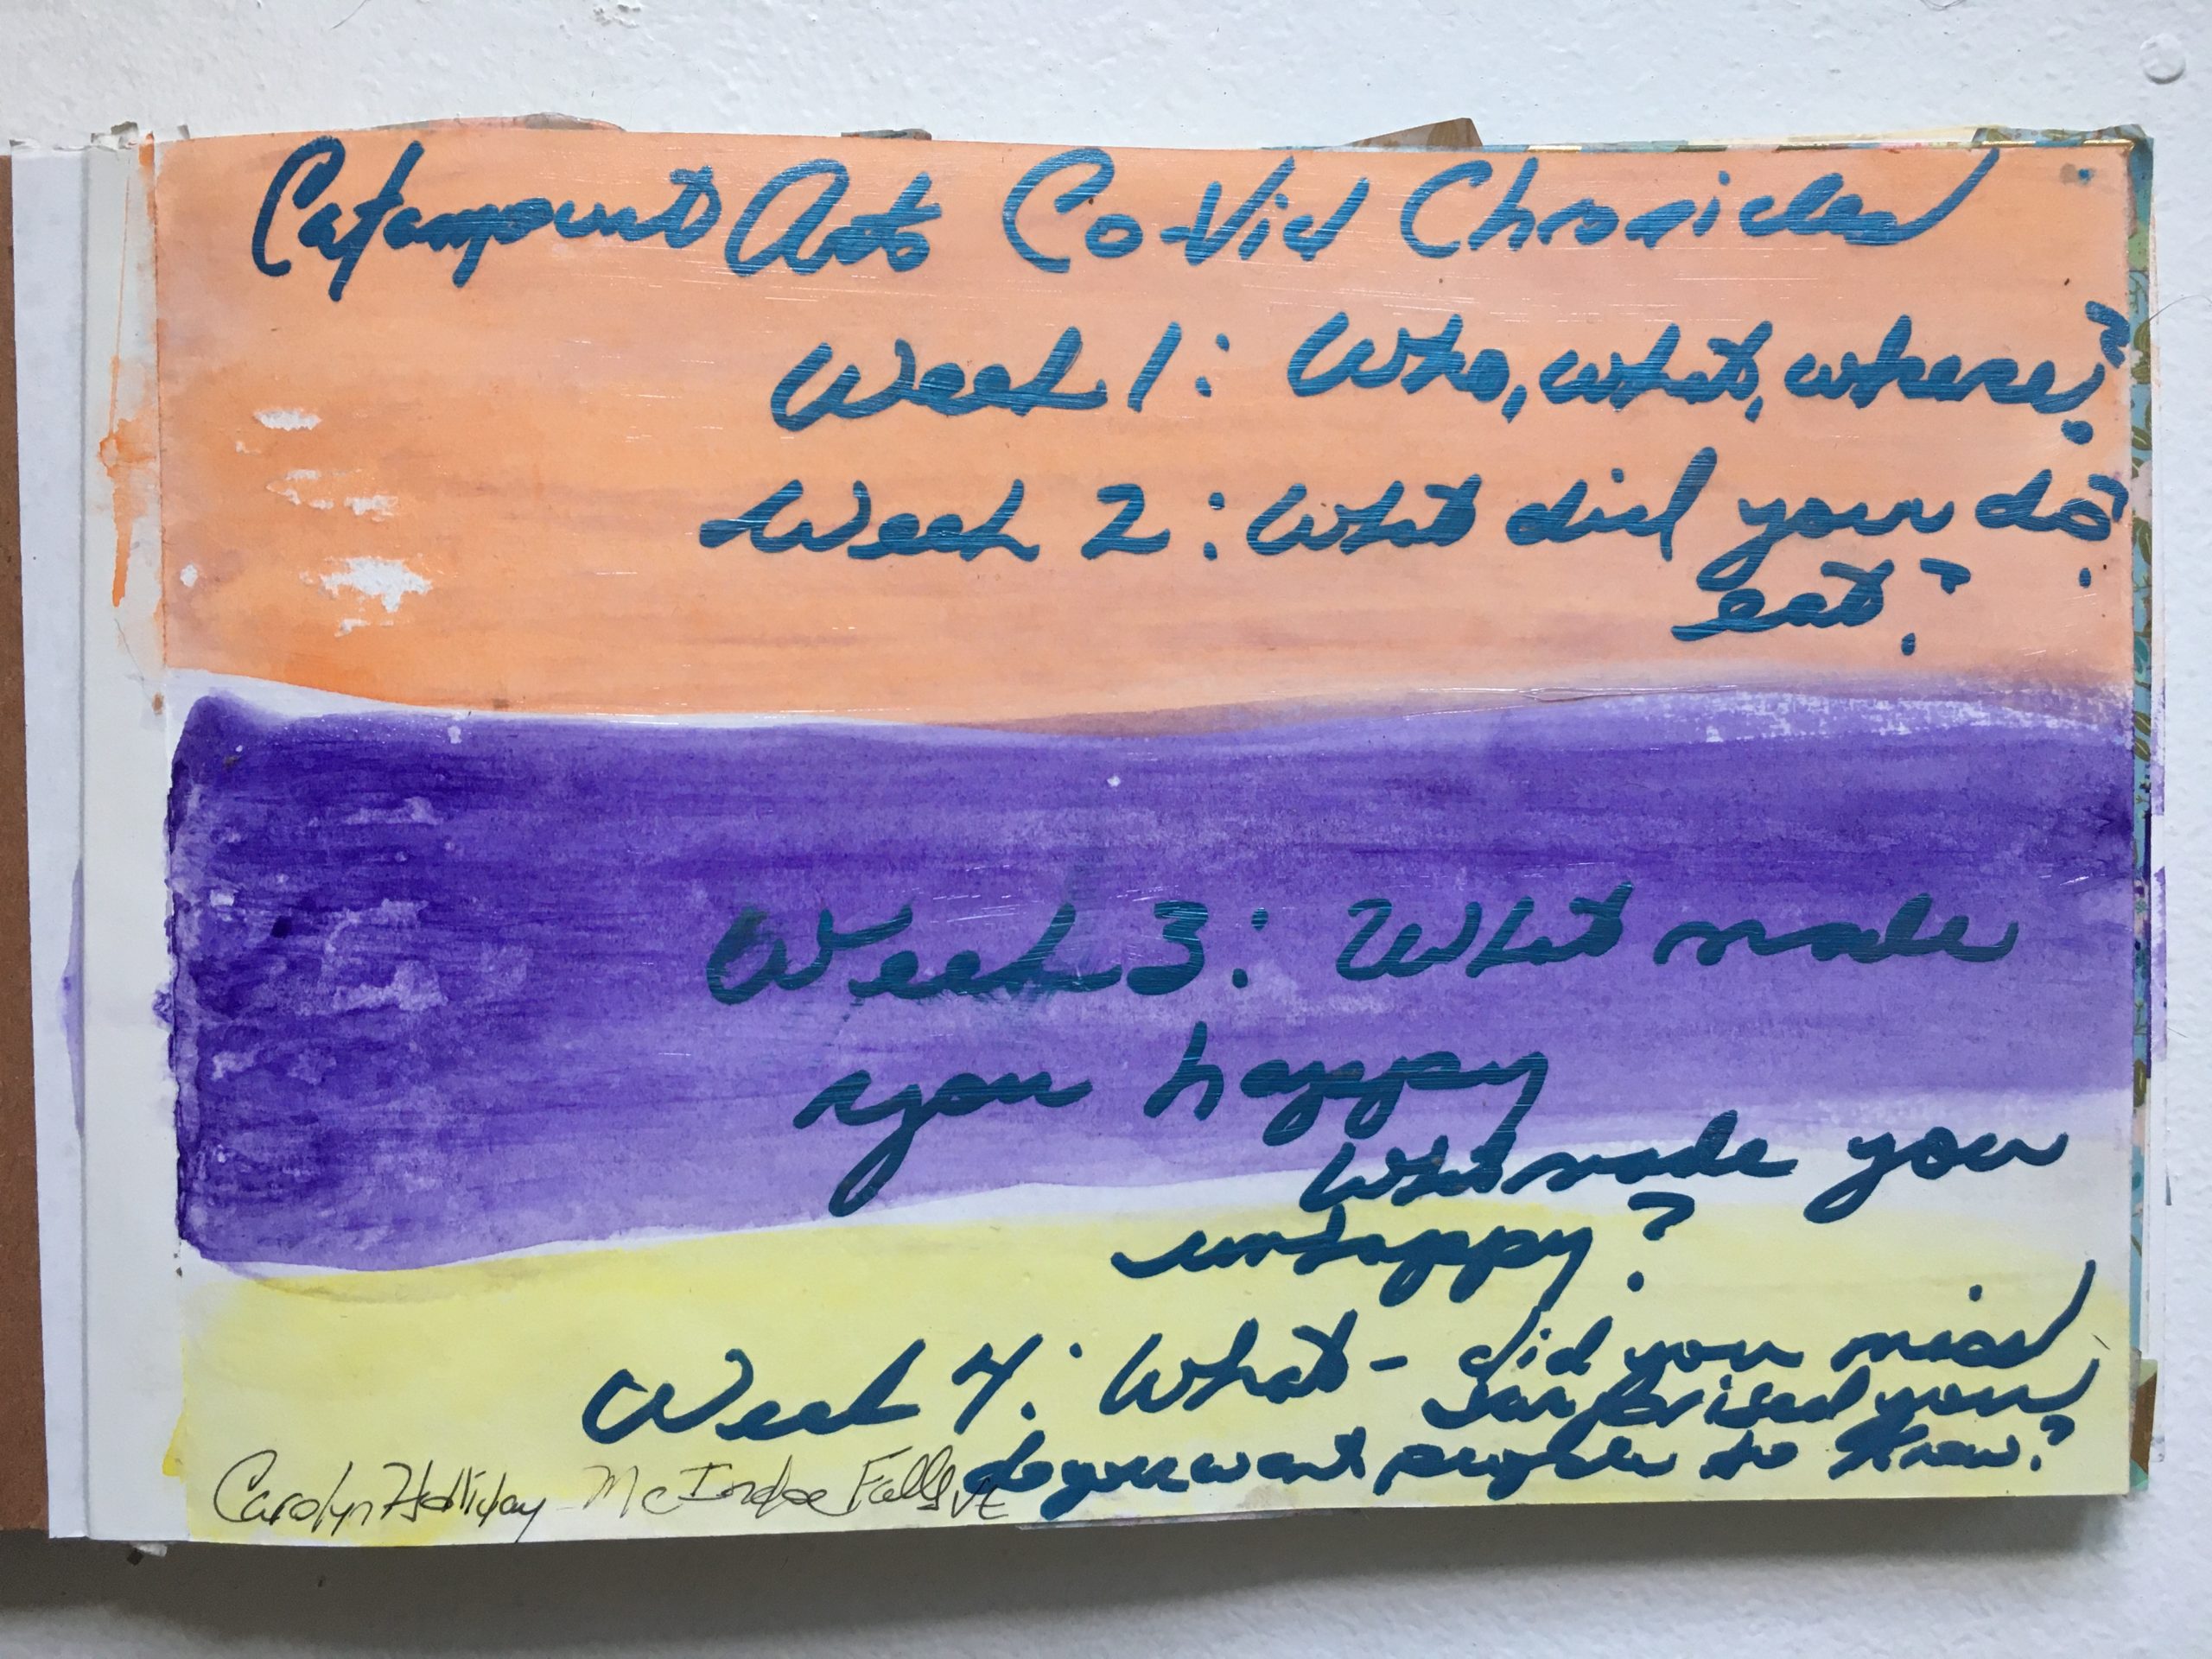 Catamount Arts Co-Vid Chronicles
Week 1: Who, what, where?
Week 2: What did you do?
eat?
Week 3: What made
you happy
What made you
unhappy?
Week 4: What - did you miss
surprised you
do you want people to know?
Carolyn Halliday - McIndoe Falls VT